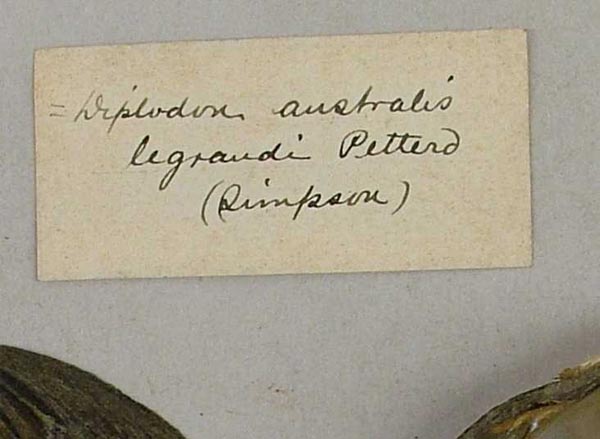 = Diplodon australis
legrandi Petterd
(Simpson)